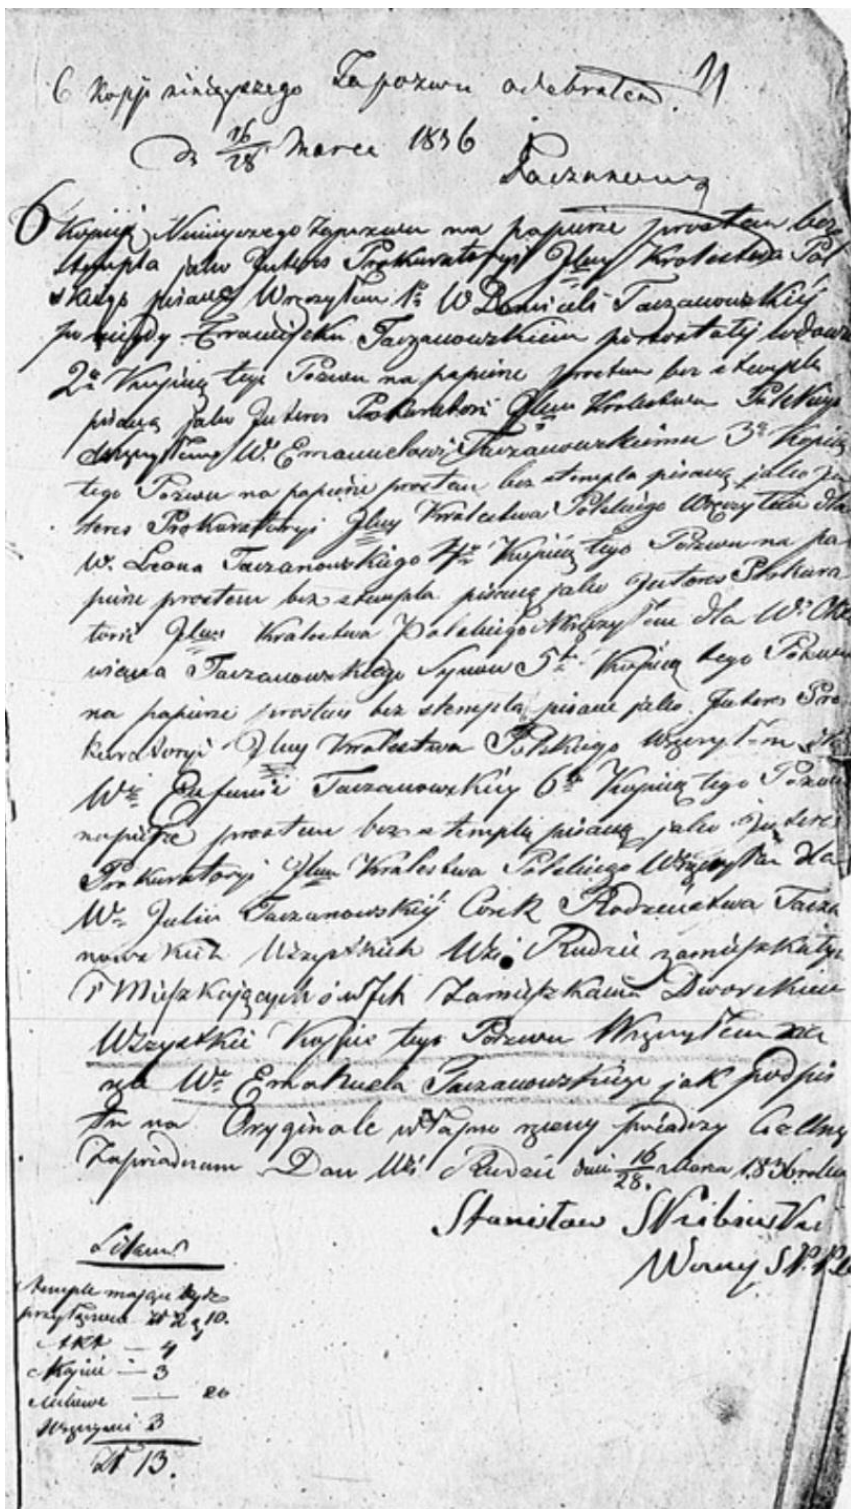 6 Kopji ninieyszego Zapozwu odebrałem. 11
d. 16/28 Marca 1836
Taczanowski
6 Kopiią Ninieyszego Zapozwu na papierze prostem bez
stempla jako Interes Prokuratoryi Jlney Krolestwa Pol
skiego pisaną Wręczyłem 1a W Domiceli Taczanowskiey
po niegdy Taczanowskiem pozostałej wdowie
2a Kopiią tego Pozwu na papierze prostem bez stempla
pisaną jako Interes Prokuratorii Jlney Krolestwa Polskiego
Wręczyłem W. Emanuelowi Taczanowskiemu 3a Kopiią
tego Pozwu na papierze prostem bez stempla pisaną jako In
teres Prokuratoryi Jlney Krolestwa Polskiego Wręczyłem dla
W. Leona Taczanowskiego 4a Kopiią tego Pozwu na pa
pierze prostem bez stempla pisaną jako Interes Prokura
torii Jlney Krolestwa Polskiego Wręczyłem dla Wo Okta
wiana Taczanowskiego Synow 5ta Kopiią tego Pozwu
na papierze prostem bez stempla pisane jako Interes Pro
kuratoryi Jlney Krolestwa Polskiego Wręczyłem dla
Wej Eufemii Taczanowskiey 6ta Kopiią tego Pozwu
napierze prostem bez stempla pisaną jako Interes
Prokuratoryi Jlney Krolestwa Polskiego Wręczyłem dla
Wej Julii Taczanowskiey Corek Rodzeństwa Tacza
nowskich Wszystkich Wsi Rudzie zamieszkałych
i Mieszkających w Ich Zamieszkaniu Dworskiem
Wszystkie Kopie tego Pozwu Wręczyłem na
ręce Wo Emanuela Taczanowskiego jak podpis
tu na Oryginale własno ręczny świadczy
Zaświadczam Dan Wsi Rudzie dnia 16/28 Marca 1836 roku
Stanisław
Wozny
Stemple mające bydz
przyłączone zł 2 g 10.
Akt — 4
Kopiie — 3
— 20
Wręczenie 3
Zł 13.